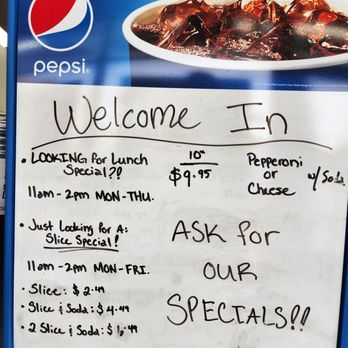 pepsi
Welcome In
• LOOKING for Lunch Special?!
10" $9.95
Pepperoni or Cheese w/ Soda
11am - 2pm MON-THU.
• Just Looking for A: Slice Special!
11am - 2pm MON-FRI.
• Slice: $2.49
• Slice & Soda: $4.49
• 2 Slice & Soda: $6.49
ASK for
OUR
SPECIALS!!